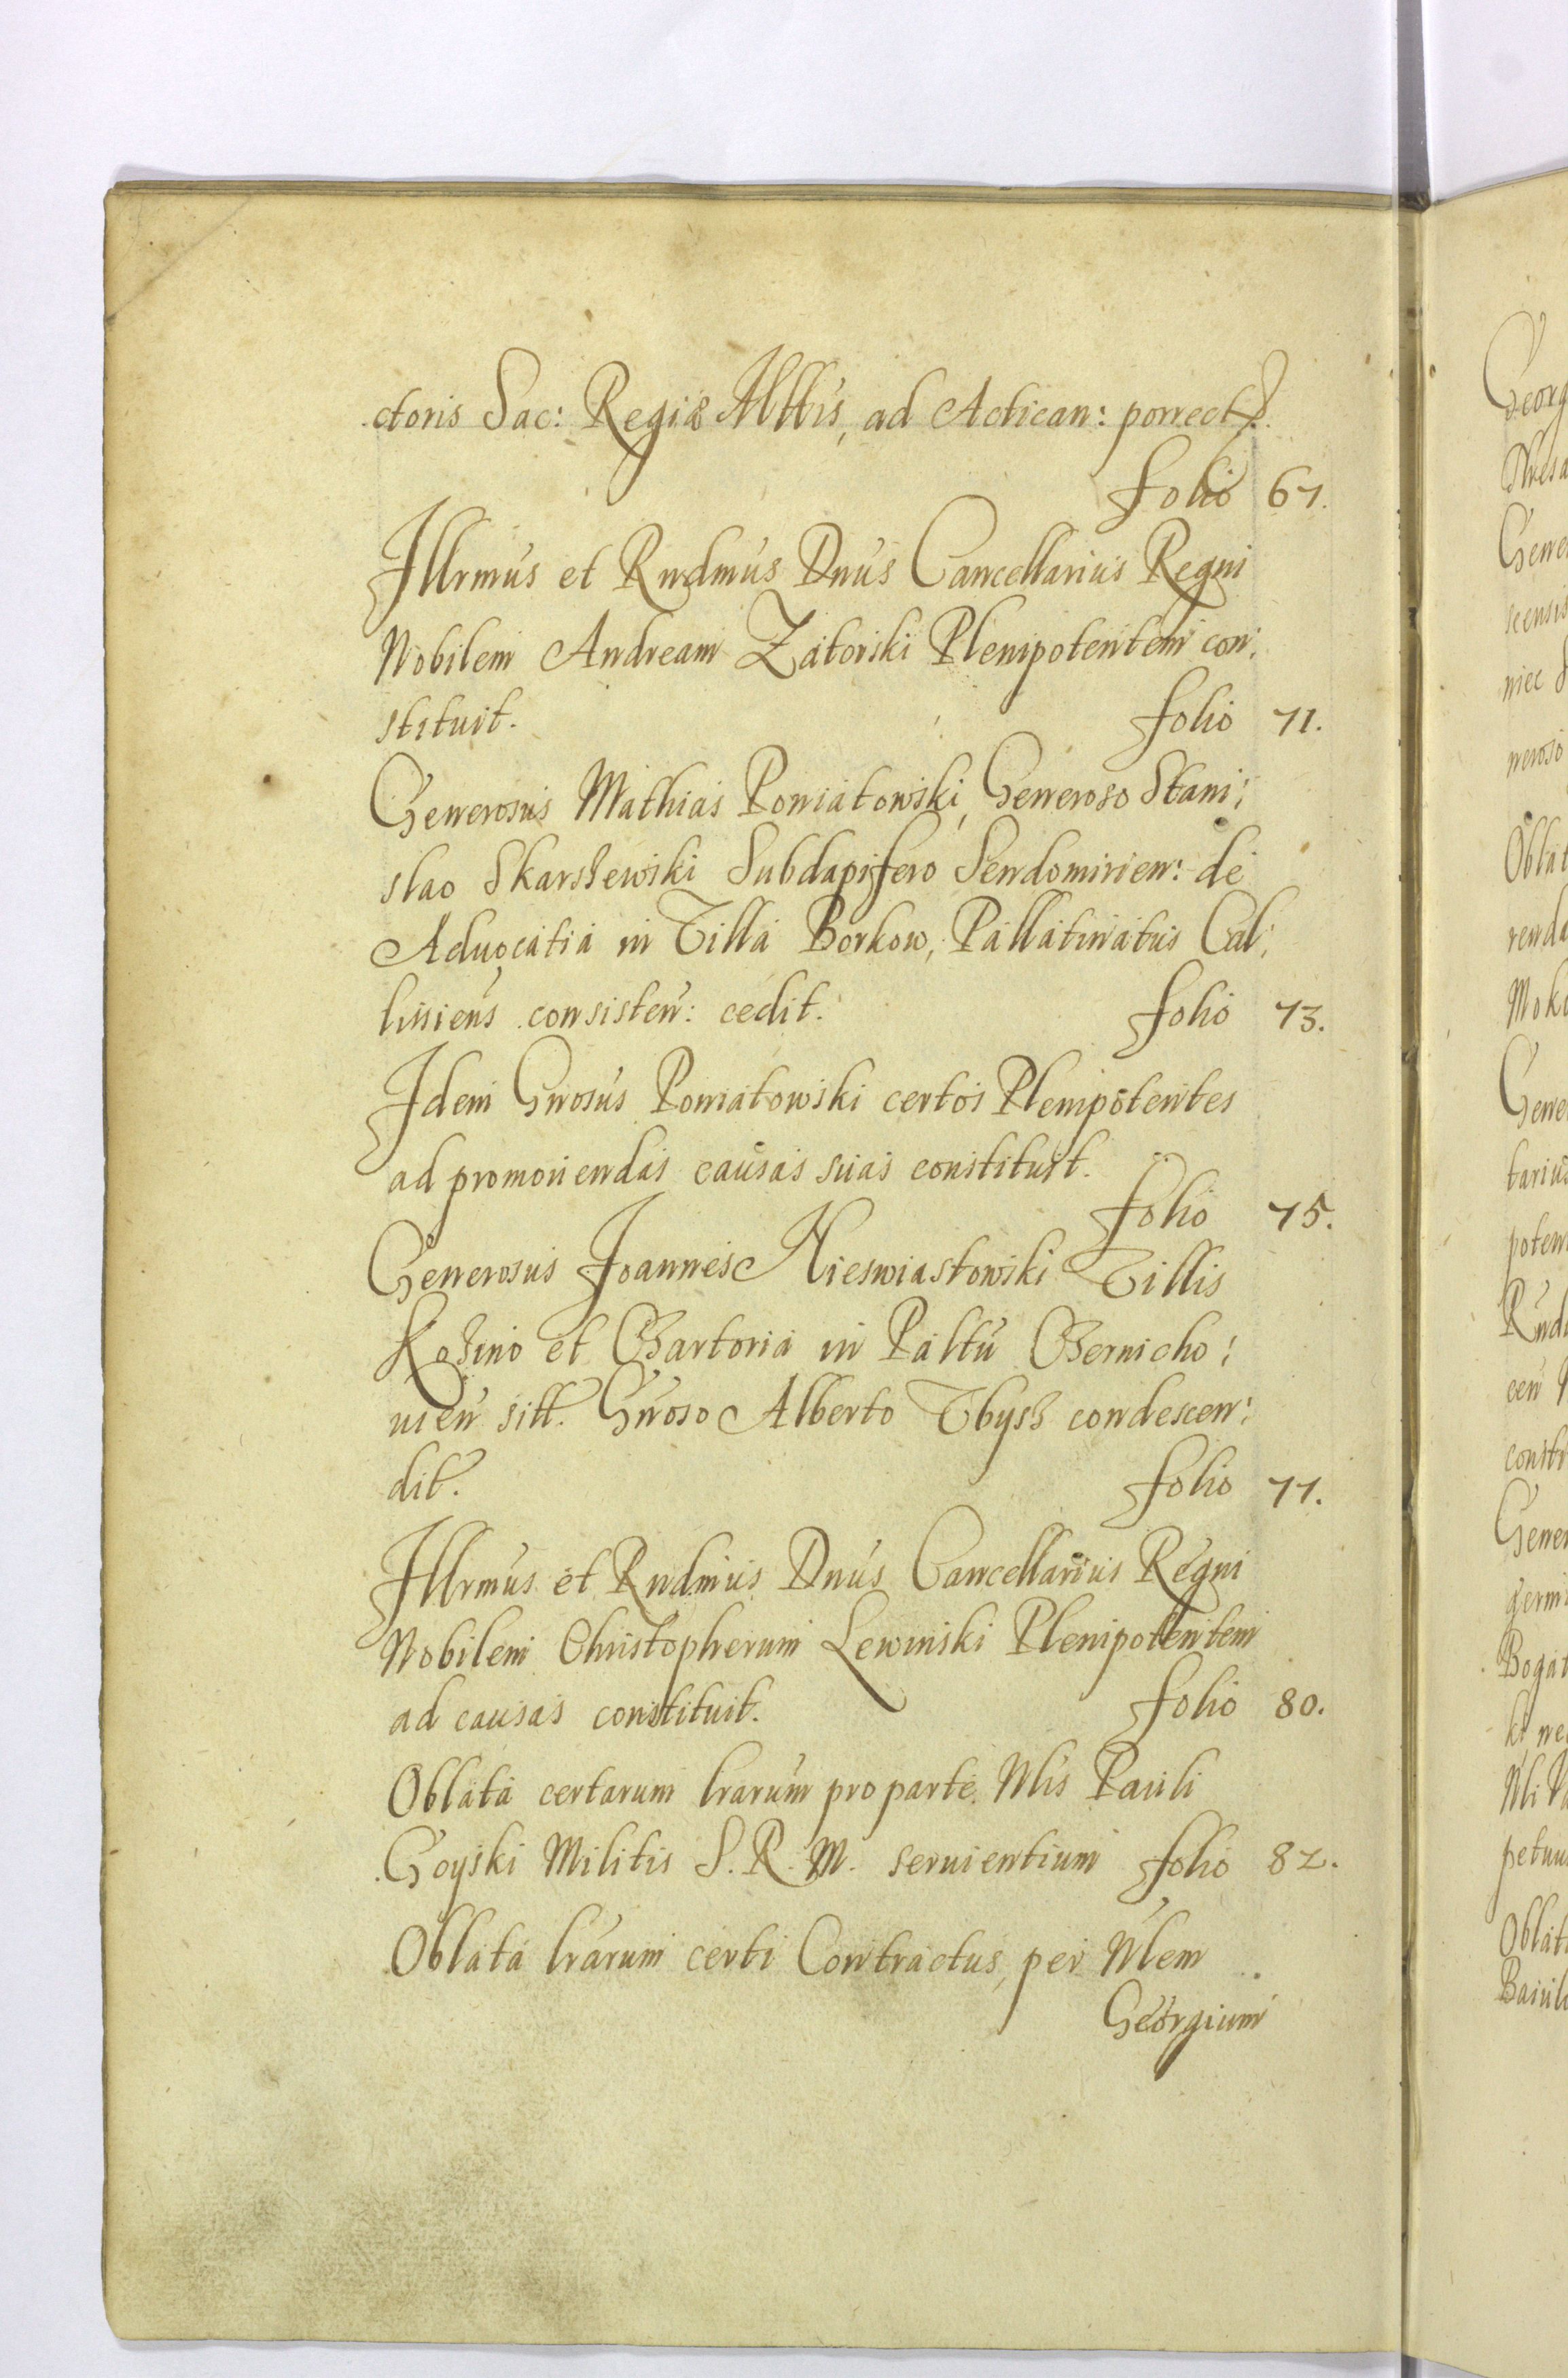 ctoris Sac: Regiæ Mttis, ad Actican: porrect.
folio 67.
Illrmus et Rndmus Dnus Cancellarius Regni
Nobilem Andream Zatorski Plenipotentem con:
stituit. folio 71.
Generosus Mathias Poniatowski, Generoso Stani:
slao Skarszewski Subdapifero Sendomirien: de
Aduocatia in Villa Borkow, Pallatinatus Cal:
lissiens consisten: cedit. folio 73.
Idem Gnosus Poniatowski certos Plenipotentes
ad promouendas causas suas constituit.
folio 75.
Generosus Joannes Nieswiastowski Villis
Kozino et Czartoria in Palttu Czernicho:
uien sitt. Gnoso Alberto Zbysz condescen:
dit. folio 77.
Illrmus et Rndmus Dnus Cancellarius Regni
Nobilem Christopherum Lewinski Plenipotentem
ad causas constituit. folio 80.
Oblata certarum lrarum pro parte Mlis Pauli
Goyski Militis S. R. M. seruientium folio 82.
Oblata lrarum certi Contractus, per Mlem
Georgium